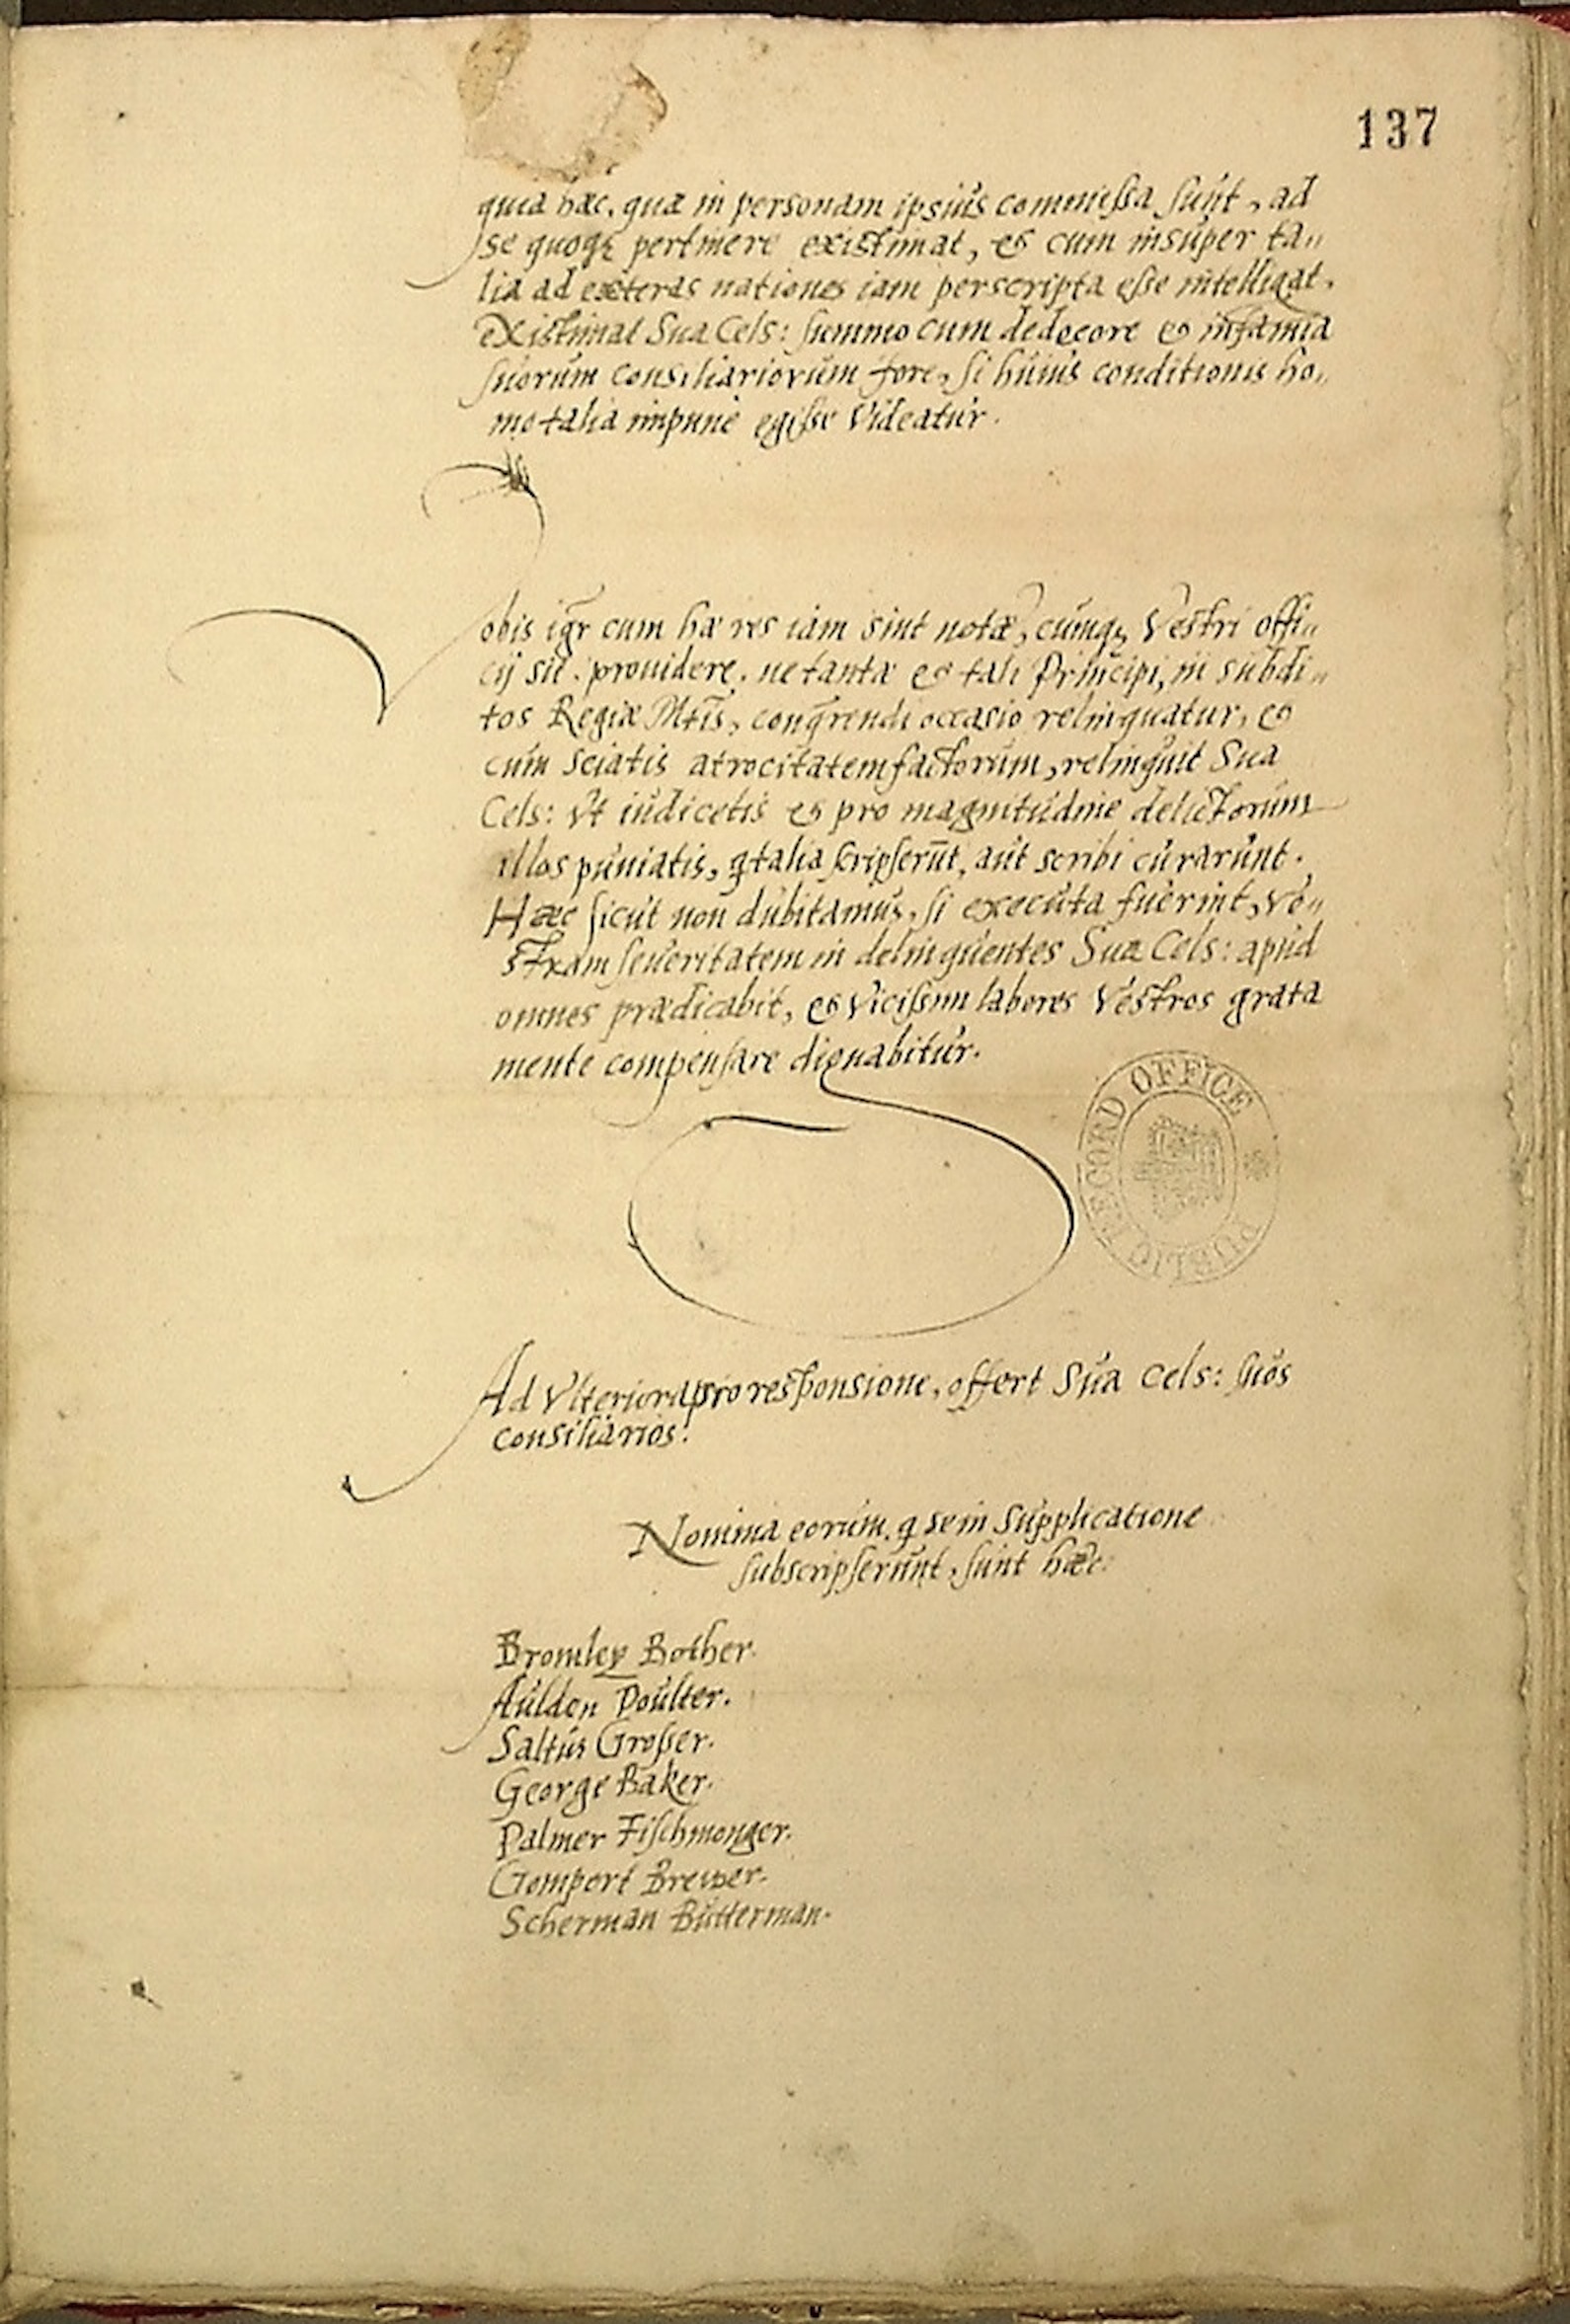 137
quia hæc, quæ in personam ipsius commissa sunt, ad
se quoqȝ pertinere existimat, et cum insuper ta„
lia ad exteras nationes iam perscripta esse intelligat,
existimat Sua Cels: summo cum dedecore et infamia
suorum consiliariorum fore, si huius conditionis ho„
mo talia impune egisse Videatur.
Vobis igr̄ cum hæ res iam sint notæ, cumqȝ Vestri offi„
cij sit prouidere, ne tantæ et tali Principi, in subdi„
tos Regiæ Mtis, conq̄rendi occasio relinquatur, et
cum sciatis atrocitatem factorum, relinquit Sua
Cels: Vt iudicetis et pro magnitudine delictorum
illos puniatis, q talia scripserūt, aut scribi curarunt.
Hæc sicut non dubitamus, si executa fuerint, ve„
stram seueritatem in delinquentes Sua Cels: apud
omnes prædicabit, et Vicissim labores Vestros grata
mente compensare dignabitur.
PUBLIC RECORD OFFICE
Ad Vlteriora pro responsione, offert Sua Cels: suos
consiliarios.
Nomina eorum, q se in Supplicatione
subscripserunt, sunt hæc:
Bromley Bother.
Aulden Poulter.
Saltus Grosser.
George Baker.
Palmer Fischmonger.
Gomport Brewer.
Scherman Butterman.